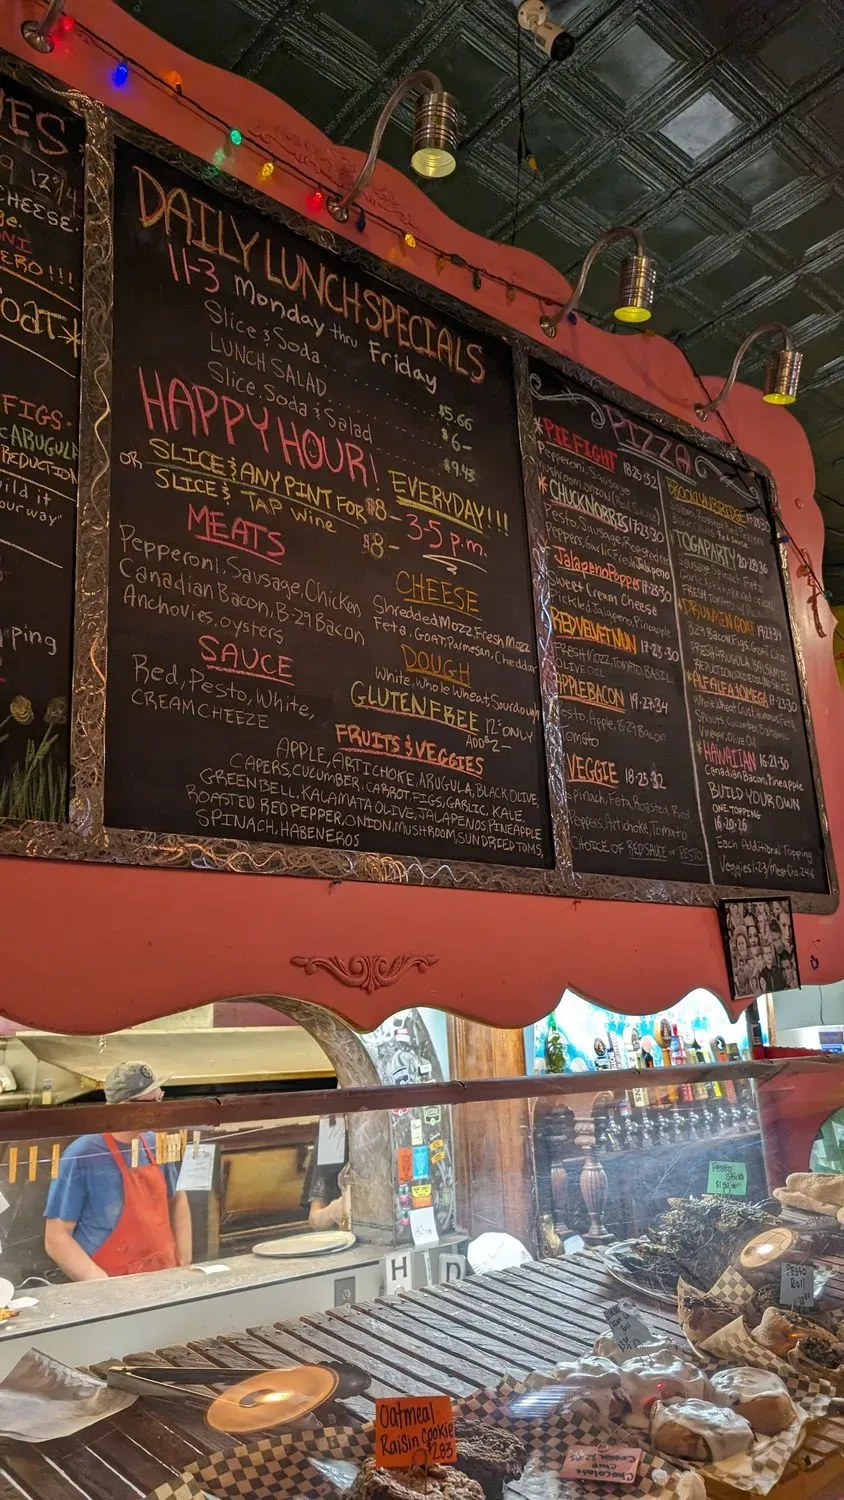 ES
12"/
CHEESE
ge.
ERO!!!
FIGS
ARUGULA
REDUCTION
uild it
our way"
ping
DAILY LUNCH SPECIALS
11-3 Monday thru Friday
Slice & Soda $5.66
LUNCH SALAD $6-
Slice, Soda & Salad $9.43
HAPPY HOUR! EVERYDAY!!!
SLICE & ANY PINT FOR $8- 3-5 p.m.
OR SLICE & TAP Wine $8-
MEATS
Pepperoni, Sausage, Chicken
Canadian Bacon, B-29 Bacon
Anchovies, oysters
SAUCE
Red, Pesto, White,
CREAM CHEEZE
CHEESE
Shredded Mozz, Fresh Mozz
Feta, GOAT, Parmesan, Cheddar
DOUGH
White, Whole Wheat, Sourdough
GLUTEN FREE 12" ONLY
ADD $2-
FRUITS & VEGGIES
APPLE, ARTICHOKE, ARUGULA, BLACK OLIVE,
CAPERS, CUCUMBER, CARROT, FIGS, GARLIC, KALE
GREEN BELL, KALAMATA OLIVE, JALAPENOS, PINEAPPLE
ROASTED RED PEPPER, ONION, MUSHROOM, SUNDRIED TOMS,
SPINACH, HABENEROS
PIZZA
*PIE FIGHT 18-25-32
Pepperoni, Sausage
Mushroom, onion
*CHUCK NORRIS 17-23-30
Pesto, Sausage, Roasted Red
Peppers, Garlic, Fresh Jalapeno
*Jalapeno Popper 17-23-30
Sweet Cream Cheese
Pickled Jalapeno, Pineapple
RED VELVET NUN 17-23-30
FRESH MOZZ, TOMATO, BASIL
OLIVE OIL
APPLE BACON 19-27-34
Pesto, Apple, B-29 Bacon
Tomato
VEGGIE 18-25-32
Spinach, Feta, Roasted Red
Peppers, Artichoke, Tomato
CHOICE OF RED SAUCE or PESTO
BROOKLYN BRIDGE 17-23-30
TOGA PARTY 20-28-36
Sausage, Spinach, Feta
*DRUNKEN GOAT 19-27-34
B29 Bacon, Figs, Goat Chz
FRESH ARUGULA, BALSAMIC
REDUCTION
*ALFALFA & OMEGA 17-23-30
Whole Wheat Crust, Hummus, Feta
Sprouts, Cucumber, Balsamic
Vinegar, Olive Oil
*HAWAIIAN 16-21-30
Canadian Bacon, Pineapple
BUILD YOUR OWN
ONE TOPPING
Each Additional Topping
Veggies 1-2-3/Meat-Chz 2-4-6
H D
Pesto
Sticks
Pesto
Roll
Oatmeal
Raisin Cookie
$2.83
Chocolate
Chip